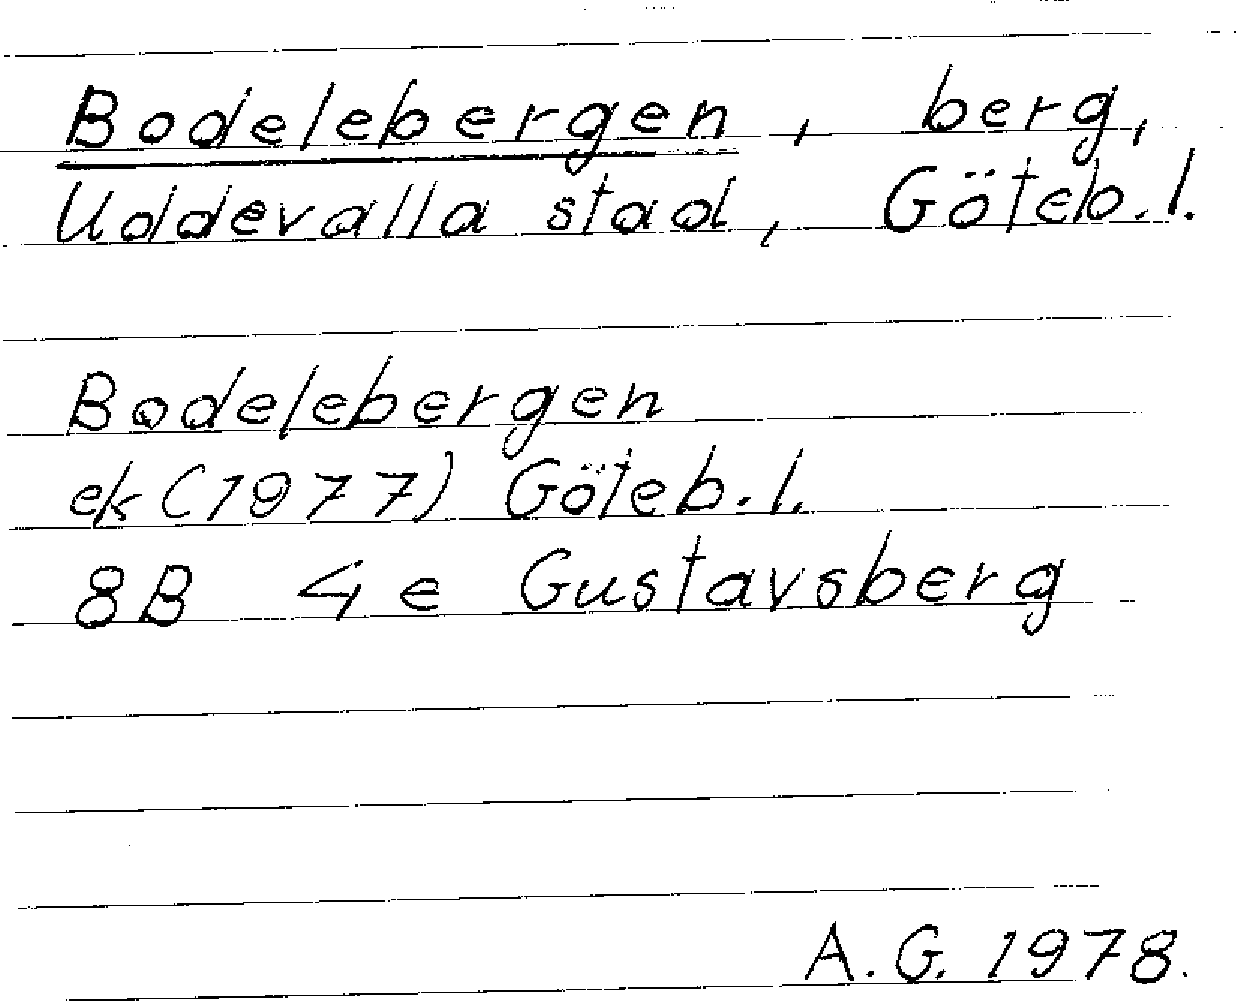 Bodelebergen, berg,
Uddevalla stad, Göteb.l.
Bodelebergen
ek (1977) Göteb.l.
8B 4e Gustavsberg
A.G. 1978.